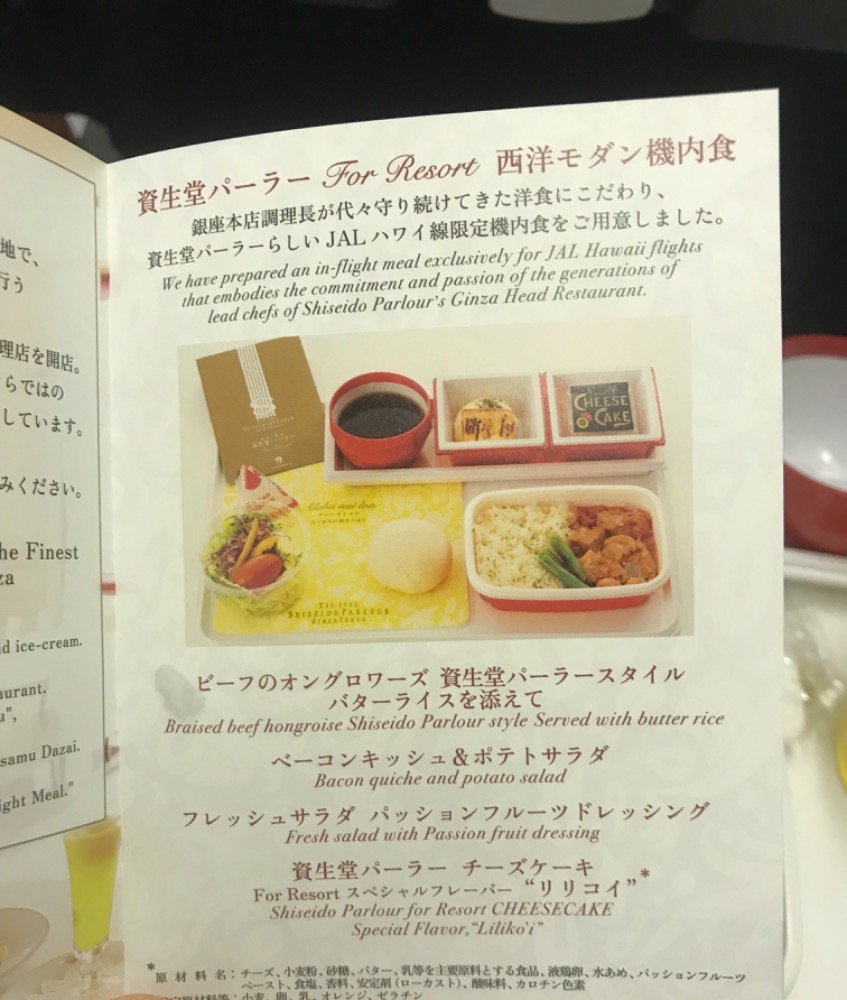 地で、
行う
理店を開店。
らではの
しています。
みください。
he Finest
za
d ice-cream.
aurant.
u",
samu Dazai.
ight Meal."
資生堂パーラー For Resort 西洋モダン機内食
銀座本店調理長が代々守り続けてきた洋食にこだわり、
資生堂パーラーらしい JAL ハワイ線限定機内食をご用意しました。
We have prepared an in-flight meal exclusively for JAL Hawaii flights
that embodies the commitment and passion of the generations of
lead chefs of Shiseido Parlour's Ginza Head Restaurant.
CHEESE
CAKE
Aloha nui loa
EST. 1902
SHISEIDO PARLOUR
GINZA TOKYO
ビーフのオングロワーズ 資生堂パーラースタイル
バターライスを添えて
Braised beef hongroise Shiseido Parlour style Served with butter rice
ベーコンキッシュ&ポテトサラダ
Bacon quiche and potato salad
フレッシュサラダ パッションフルーツドレッシング
Fresh salad with Passion fruit dressing
資生堂パーラー チーズケーキ
For Resort スペシャルフレーバー “リリコイ”*
Shiseido Parlour for Resort CHEESECAKE
Special Flavor,“Liliko`i”
*原 材 料 名:チーズ、小麦粉、砂糖、バター、乳等を主要原料とする食品、液鶏卵、水あめ、パッションフルーツ
ペースト、食塩、香料、安定剤(ローカスト)、酸味料、カロチン色素
原材料等:小麦、卵、乳、オレンジ、ゼラチン